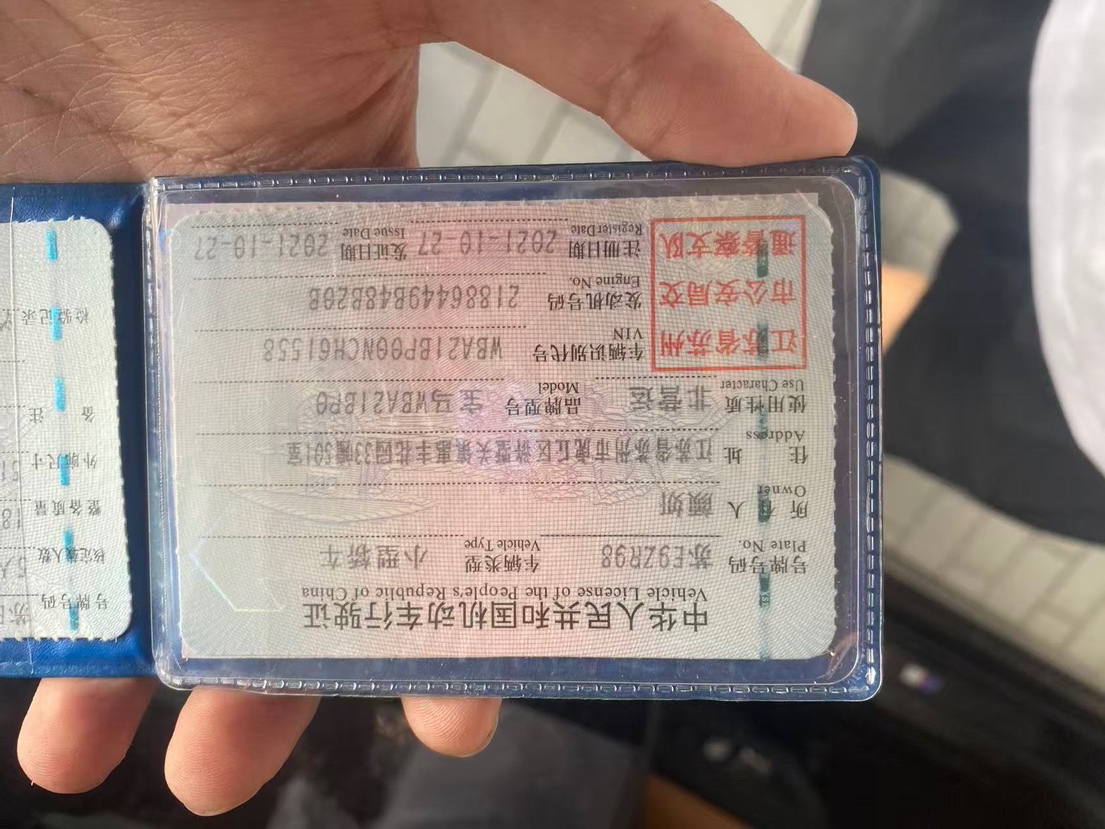 中华人民共和国机动车行驶证
Vehicle License of the People's Republic of China
号牌号码 苏E9ZR98 车辆类型 小型轿车
Plate No. Vehicle Type
所有人 颜如
Owner
住址 江苏省苏州市虎丘区浒墅关镇惠丰花园33幢501室
Address
使用性质 非营运 品牌型号 宝马WBA21BP0
Use Character Model
江苏省苏州
市公安局交
通警察支队
车辆识别代号 WBA21BP00NCH61558
VIN
发动机号码 21886449B48B20B
Engine No.
注册日期 2021-10-27 发证日期 2021-10-27
Register Date Issue Date
号牌号码 苏
核定载人数 5人
整备质量 18
外廓尺寸
备注
检验记录